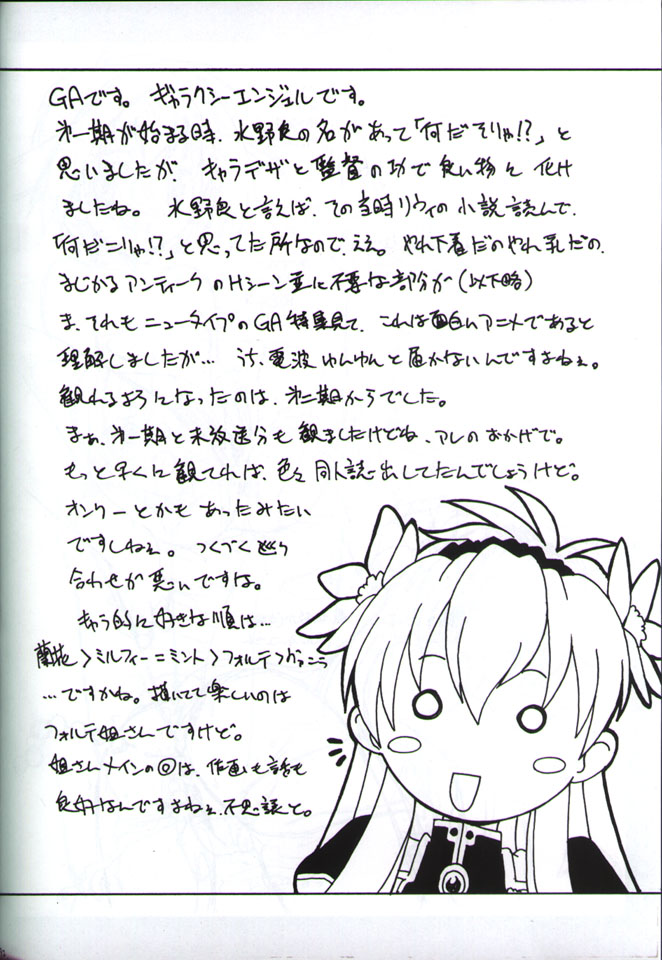 GAです。 ギャラクシーエンジェルです。
第一期が始まる時、水野良の名があって「何だそりゃ!?」と
思いましたが、 キャラデザと監督の功で良い物に 化け
ましたね。 水野良と言えば、その当時リウイの小説読んで、
「何だこりゃ!?」と思ってた所なので、ええ。 やれ下着だのやれ乳だの、
まじかるアンティークのHシーン並に不要な部分が(以下略)
ま、それもニュータイプのGA特集見て、これは面白いアニメであると
理解しましたが… うち、電波ゆんゆんと届かないんですよねぇ。
観れるようになったのは、第二期からでした。
まぁ、第一期と未放送分も観ましたけどね、アレのおかげで。
もっと早くに観てれば、色々同人誌出してたんでしょうけど。
オンリーとかもあったみたい
ですしねぇ。 つくづく巡り
合わせが悪いですな。
キャラ的に好きな順は…
蘭花>ミルフィー=ミント>フォルテ>
…ですかね。描いてて楽しいのは
フォルテ姐さんですけど。
姐さんメインの回は、作画も話も
良好なんですよねぇ、不思議と。